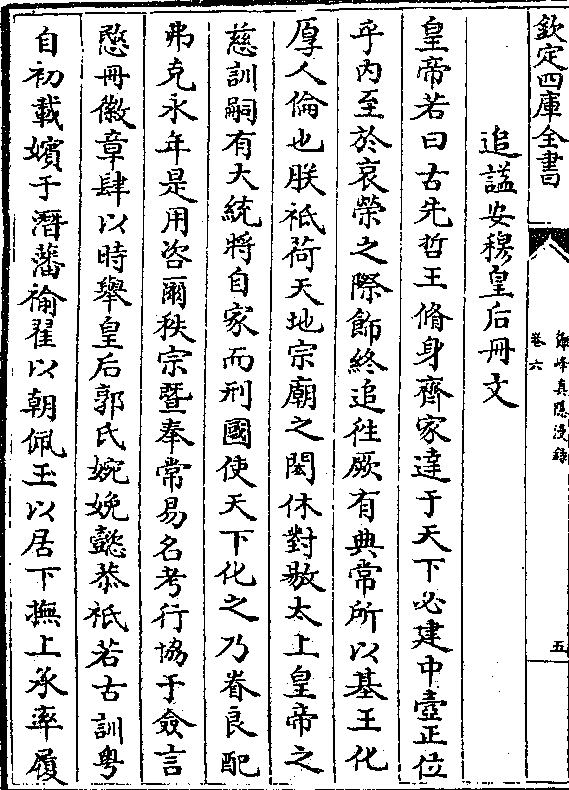 欽定四庫全書
鄮峰真隱漫錄
卷六
五
追諡安穆皇后冊文
皇帝若曰古先哲王脩身齊家達于天下必建中壼正位
乎内至於哀榮之際飾終追徃厥有典常所以基王化
厚人倫也朕祗荷天地宗廟之閎休對敭太上皇帝之
慈訓嗣有大統將自家而刑國使天下化之乃眷良配
弗克永年是用咨爾秩宗暨奉常易名考行協于僉言
愍冊徽章肆以時舉皇后郭氏婉娩懿恭祗若古訓粤
自初載嬪于潛藩褕翟以朝佩玉以居下撫上承率履